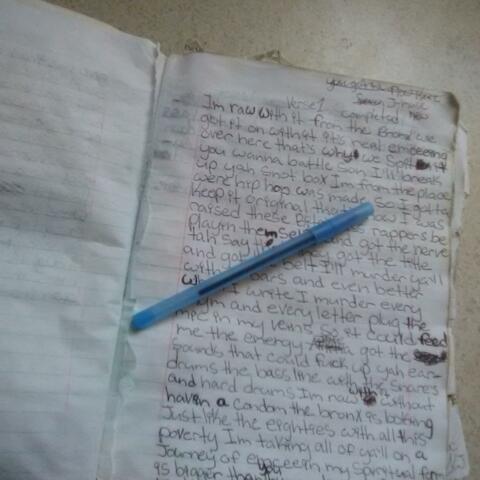 Verse 1 completed
Im raw with it from the Bronx we
got it on with it it's real emceeing
over here that's why we spit it
you wanna battle son I'll break
up yah snot box Im from the place
were hip hop was made so I gotta
keep it original that how I was
raised these rappers be
playin them self and got the nerve
tah say they got the title
and got belt I'll murder ya'll
with bars and even better
I write I murder every
and every letter plug the
mic in my veins so it could feed
me the energy got the
sounds that could fuck up yah ear
drums the bass line with the snares
and hard drums I'm raw with it without
havin a condom the bronx is looking
Just like the eighties with all this
poverty I'm taking all of ya'll on a
Journey of in my Spiritual form
is bigger than